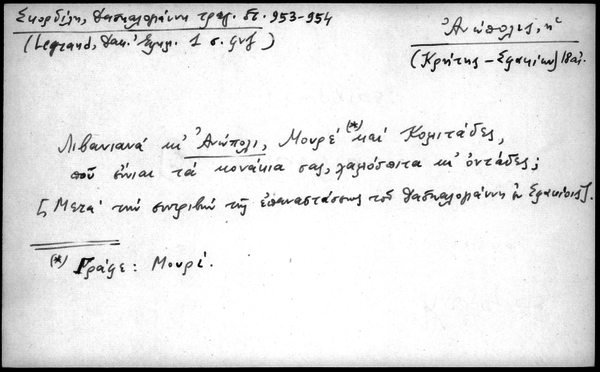 Σκορδίλη, Δασκαλογιάννη τραγ. στ. 953-954
(Legrand, Δακ. Ἑλλην. 1 σ. ϟνζ)
Ἀνώπολις, ἡ
(Κρήτης – Σφακίων) 18 αἰ.
Λιβανιανά κι' Ἀνώπολι, Μουρέ (*) καί Κολιτάδες,
ποῦ εἶναι τά κονάκια σας, παλιόσπιτα κι' ὀντάδες;
[Μετά τήν συντριβήν τῆς ἐπαναστάσεως τοῦ Δασκαλογιάννη ἐν Σφακίοις].
(*) Γράφε: Μουρί.